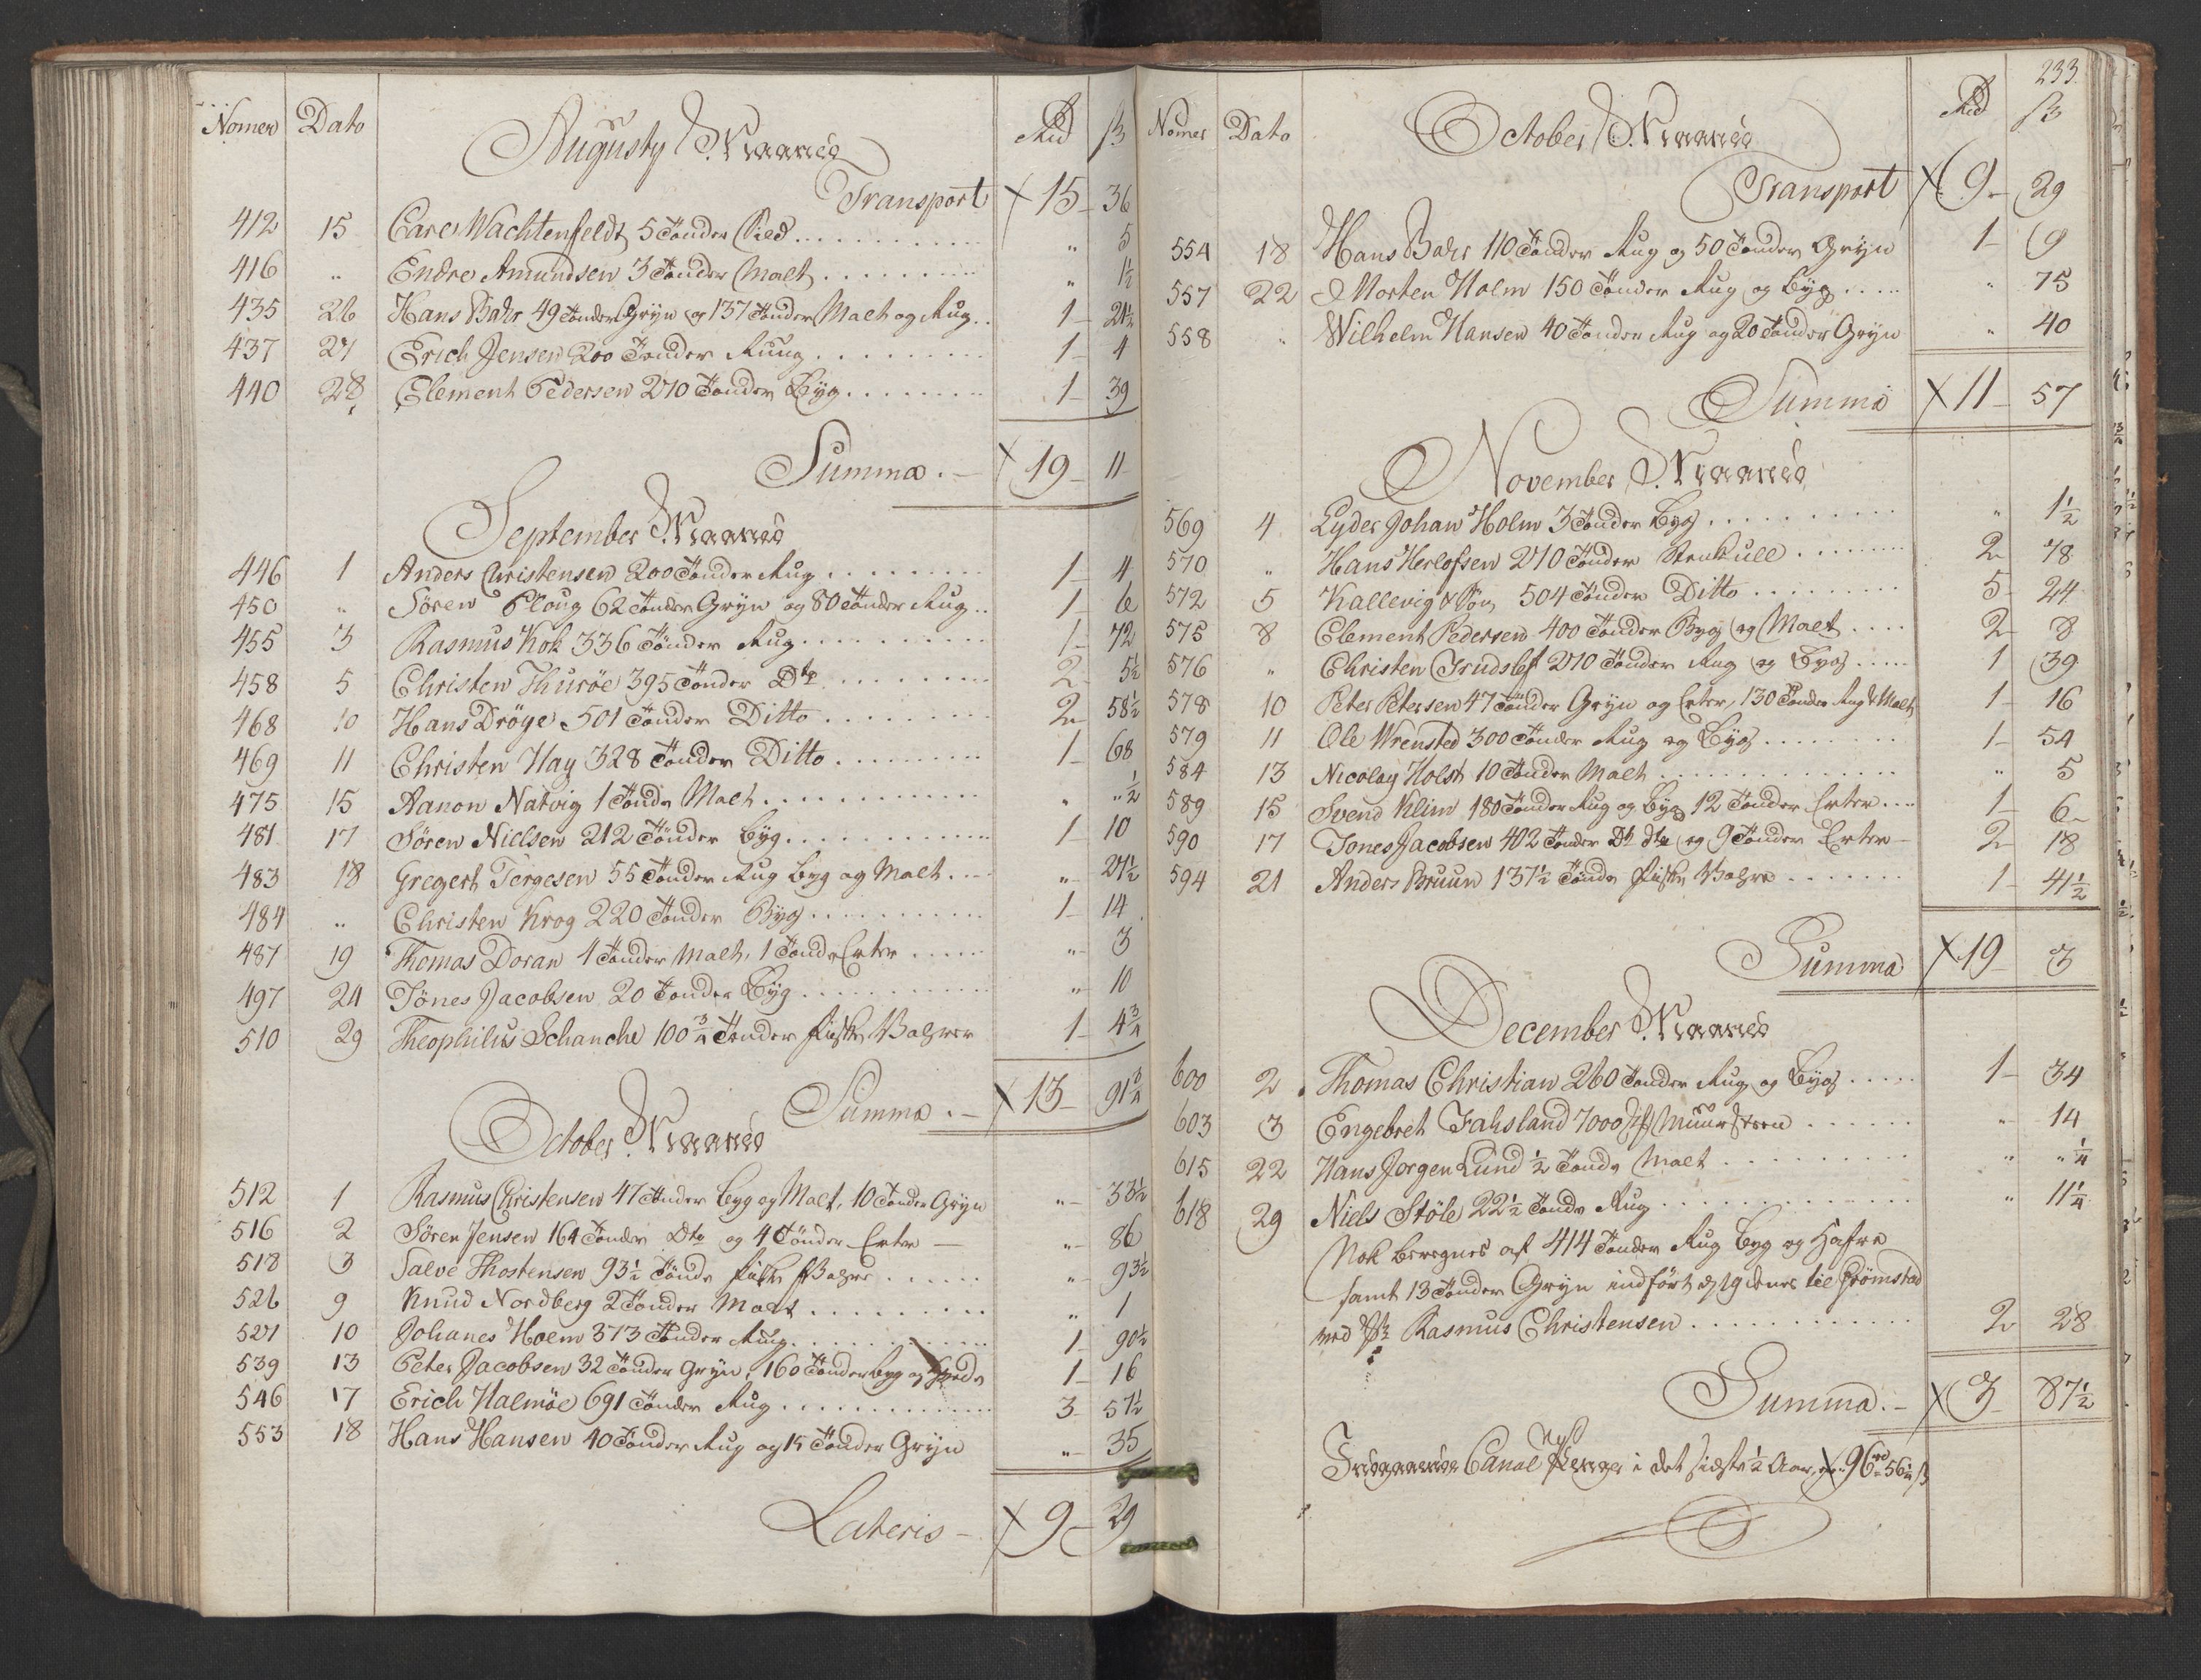 Nomer Dato Augusty Maaned Rd ß
Transport 15 36
412 15 Carl Wachtenfeldt 5 Tönder Sild " 5
416 " Endre Amundsen 3 Tönder Malt " 1½
435 26 Hans Bahr 49 Tönder Gryn og 137 Tönder Malt og Rug 1 21½
437 27 Erich Jensen 200 Tönder Ruug 1 4
440 28 Clement Pedersen 270 Tönder Byg 1 39
Summa 19 11
September Maaned
446 1 Anders Christensen 200 Tönder Rug 1 4
450 " Sören Ploug 62 Tönder Gryn og 80 Tönder Rug 1 6
455 3 Rasmus Kok 336 Tönder Rug 1 72
458 5 Christen Thuröe 395 Tönder Dto 2 5½
468 10 Hans Dröye 501 Tönder Ditto 2 58½
469 11 Christen Hay 328 Tönder Ditto 1 68
475 15 Aanon Natvig 1 Tönde Malt " "½
481 17 Sören Nielsen 212 Tönder Byg 1 10
483 18 Gregert Tergesen 55 Tönder Rug Byg og Malt " 27½
484 " Christen Krog 220 Tönder Byg 1 14
487 19 Thomas Doran 4 Tönder Malt, 1 Tönde Erter " 3
497 24 Tönes Jacobsen 20 Tönder Byg " 10
510 29 Theophilus Schanche 100¾ Tönder fiske Vahrer 1 4¾
Summa 13 91¾
October Maaned
512 1 Rasmus Christensen 47 Tönder Byg og Malt, 10 Tönder Gryn " 33½
516 2 Sören Jensen 164 Tönder Dto og 4 Tönder Erter " 86
518 3 Salve Thostensen 93½ Tönde fiske Vahrer " 93½
526 9 Knud Nordberg 2 Tönder Malt " 1
527 10 Johanes Holm 373 Tönder Rug 1 90½
539 13 Peter Jacobsen 32 Tönder Gryn, 160 Tönder Byg og 1 16
546 17 Erich Halmöe 691 Tönder Rug 3 57½
553 18 Hans Hansen 40 Tönder Rug og 15 Tönder Gryn " 35
Lateris 9 29
233
Nomer Dato October Maaned Rd ß
Transport 9 29
554 18 Hans Bahr 110 Tönder Rug og 50 Tönder Gryn 1 9
557 22 Morten Holm 150 Tönder Rug og Byg " 75
558 " Wilhelm Hansen 40 Tönder Rug og 20 Tönder Gryn " 40
Summa 11 57
November Maaned
569 4 Lyder Johan Holm 3 Tönder Byg " 1½
570 " Hans Herlofsen 270 Tönder Steenkull 2 78
572 5 Kallevig & Sön 504 Tönder Ditto 5 24
575 8 Clement Pedersen 400 Tönder Byg og Malt 2 8
576 " Christen Trudslef 270 Tönder Rug og Byg 1 39
578 10 Peter Petersen 47 Tönder Gryn og Erter, 130 Tönder Rug & Malt 1 16
579 11 Ole Wrensted 300 Tönder Rug og Byg 1 54
584 13 Nicolay Holst 10 Tönder Malt " 5
589 15 Svend Klim 180 Tönder Rug og Byg 12 Tönder Erter 1 6
590 17 Tones Jacobsen 402 Tönder Dto dto og 9 Tönder Erter 2 18
594 21 Anders Bruun 137½ Tönde fiske Vahre 1 41½
Summa 19 3
December Maaned
600 2 Thomas Christian 260 Tönder Rug og Byg 1 34
603 3 Engebret Fahsland 7000 st Muursteen " 14
615 22 Hans Jorgen Lund ½ Tönde Malt " "¼
618 29 Niels Stöle 22½ Tönde Rug " 11¼
Nok beregnes af 414 Tönder Rug Byg og Hafre
samt 13 Tönder Gryn indfört til Grömstad
ved Rasmus Christensen 2 28
Summa 3 87½
Canal Penge i det sidste ½ Aar 96 rd 56¼ ß